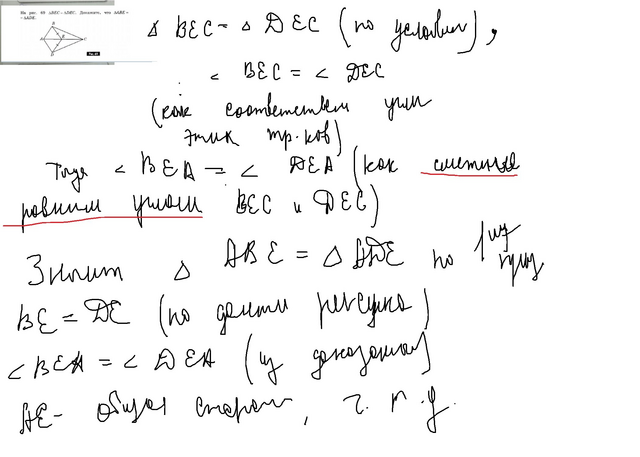 На рис. 69 ΔBEC=ΔDEC. Докажите, что ΔABE=
=ΔADE.
B
A E C
D
Δ BEC = Δ DEC (по условию),
∠ BEC = ∠ DEC
(как соответствен углы
этих тр-ков)
Тогда ∠ BEA = ∠ DEA (как смежные
равным углам BEC и DEC)
Значит Δ ABE = Δ ADE по 1 из
BE = DE (по данным рисунка)
∠ BEA = ∠ DEA (из доказанного)
AE - общая сторона, ч. т. д.